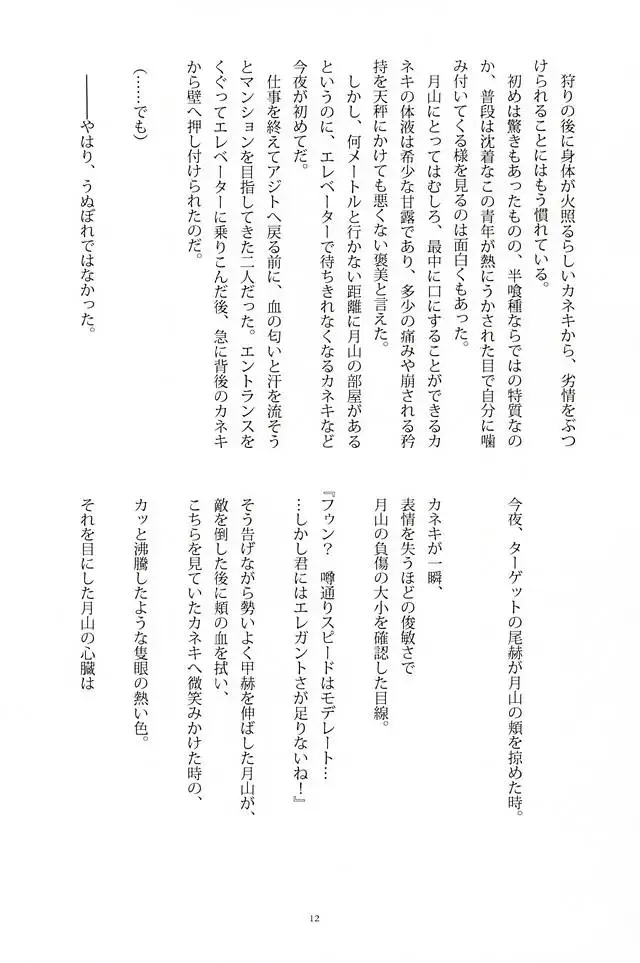 狩りの後に身体が火照るらしいカネキから、劣情をぶつ
けられることにはもう慣れている。
初めは驚きもあったものの、半喰種ならではの特質なの
か、普段は沈着なこの青年が熱にうかされた目で自分に噛
み付いてくる様を見るのは面白くもあった。
月山にとってはむしろ、最中に口にすることができるカ
ネキの体液は希少な甘露であり、多少の痛みや崩される矜
持を天秤にかけても悪くない褒美と言えた。
しかし、何メートルと行かない距離に月山の部屋がある
というのに、エレベーターで待ちきれなくなるカネキなど
今夜が初めてだ。
仕事を終えてアジトへ戻る前に、血の匂いと汗を流そう
とマンションを目指してきた二人だった。エントランスを
くぐってエレベーターに乗りこんだ後、急に背後のカネキ
から壁へ押し付けられたのだ。
(……でも)
――やはり、うぬぼれではなかった。
今夜、ターゲットの尾赫が月山の頬を掠めた時。
カネキが一瞬、
表情を失うほどの俊敏さで
月山の負傷の大小を確認した目線。
『フゥン?　噂通りスピードはモデレート…
…しかし君にはエレガントさが足りないね!』
そう告げながら勢いよく甲赫を伸ばした月山が、
敵を倒した後に頬の血を拭い、
こちらを見ていたカネキへ微笑みかけた時の、
カッと沸騰したような隻眼の熱い色。
それを目にした月山の心臓は
12